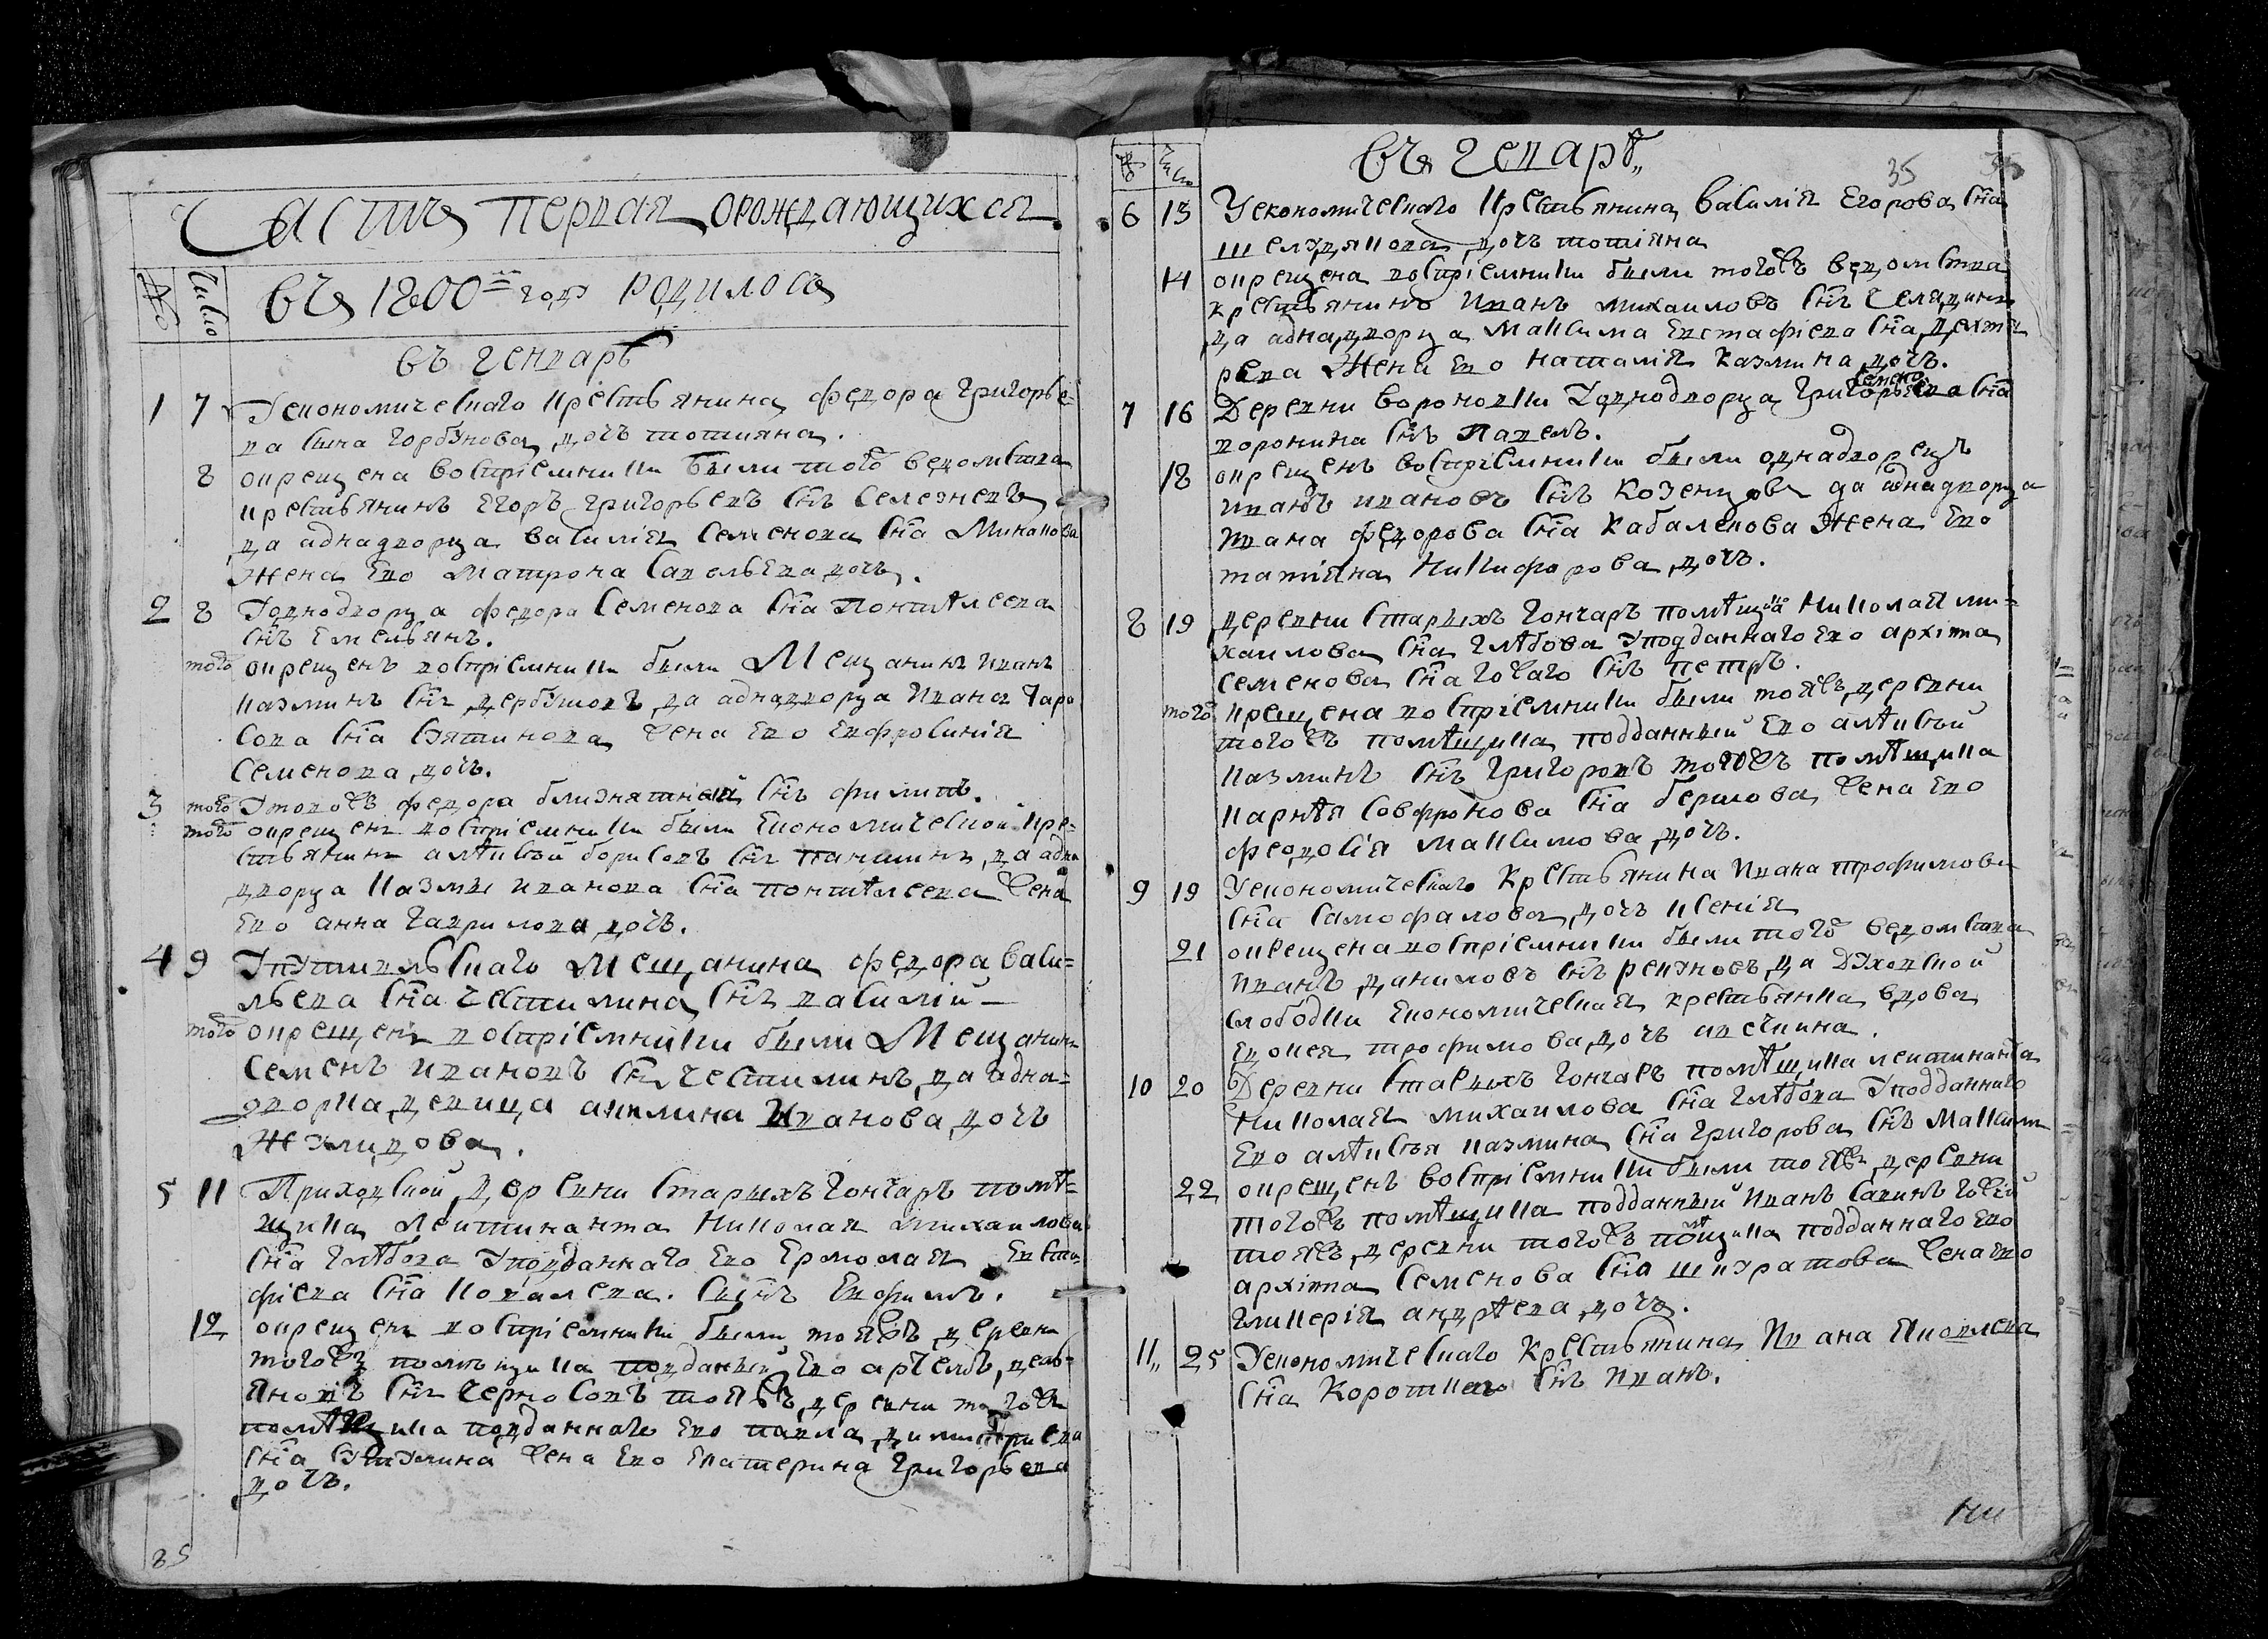 Часть первая орождающихся
№ Число въ 1800м году родилось
въ генваръ
1 7 Уекономическаго крестьянина федора григорье-
ва сына горбунова дочь тотияна.
8 окрещена восприемники были того ведомства
крестьянинъ Егоръ григорьевъ снъ Селезневъ
да аднадворца василия Семенова сна Минакова
Жена Ево Матрона Савельева дочь.
2 8 Уоднодворца федора Семенова сна Понтѣлеева
снъ Емельянъ.
того окрещенъ восприемники были Мещанинъ иванъ
казминъ снъ дербушовъ да аднадворца Ивана Тара
сова сна жена Ево Евфросиния
Семенова дочь.
3 того Утовожъ федора близнятный снъ филипъ.
того окрещенъ восприемники были Економической кре-
стьянинъ алѣксѣй борисовъ снъ паншинъ, да адно
дворца казмы иванова сна понтѣлеева жена
Ево анна гаврилова дочь.
4 9 Упутивльскаго Мещанина федора васи-
льева сна чествилина снъ василий
того окрещенъ восприемники были Мещанинъ
Семенъ ивановъ снъ чествилинъ, да адна-
дворка девица акилина Иванова дочь
Жэлидова.
5 11 Приходской деревни старыхъ гончаръ помѣ-
щика Леитинанта Николая михаилова
сна глѣбова Уподданнаго Ево Ермолая Евста
фиева сна ковалева. сынъ Ефимъ.
12 окрещенъ восприемники были тояжъ деревни
тогожъ помъщика подданный Ево артемъ, демь-
яновъ снъ черносовъ тояжъ деревни тогожъ
помѣщика подданнаго Ево павла димитриева
сна жена Ево Екатерина григорьева
дочь.
85
№ Число въ генваръ 35
6 13 Уекономическаго крестьянина василия Егорова сна
шелудякова дочь тотияна
14 окрещена восприемники были тогожъ ведомства
крестьянинъ Иванъ михаиловъ снъ
да аднадворца Максима Евстафиева сна дехтя
рева Жена Ево наталия казмина дочь.
7 16 Деревни вороновки Уоднодворца григорьева семена сна
воронина снъ Павелъ.
18 окрещенъ восприемники были однадворецъ
иванъ ивановъ снъ Козенцовъ да аднадворца
ивана федорова сна Кабаленова Жена Ево
татияна Никифорова дочь.
8 19 деревни старыхъ гончаръ помѣщика Николая ми-
хаилова сна глѣбова Уподданнаго Ево архипа
Семенова сна снъ петръ.
того крещена восприемники были тояжъ деревни
тогожъ помѣщика подданный Ево алѣксѣй
казминъ снъ григоровъ тогожъ помѣщика
карнѣя Софронова сна бершова жена Ево
феодосия максимова дочь.
9 19 Уекономическаго крестьянина Ивана трофимова
сна самофалова дочь ксения
21 окрещена восприемники были того ведомства
иванъ даниловъ снъ рекуновъ да Духовской
слободки Економическая крестьянка вдова
Евдокея трофимова дочь
10 20 Деревни старыхъ гончаръ помѣщика леитинанта
Николая михаилова сна глѣбова Уподданнаго
Ево алѣксѣя казмина сна григорова снъ Максимъ
22 окрещенъ восприемники были тояжъ деревни
тогожъ помѣщика подданный иванъ савинъ
тояжъ деревни тогожъ помѣщика подданнаго Ево
архипа Семенова сна шкуратова жена Ево
гликерия андрѣева дочь.
11 25 Уекономическаго крестьянина Ивана Яковлева
сна Короткаго снъ Иванъ.